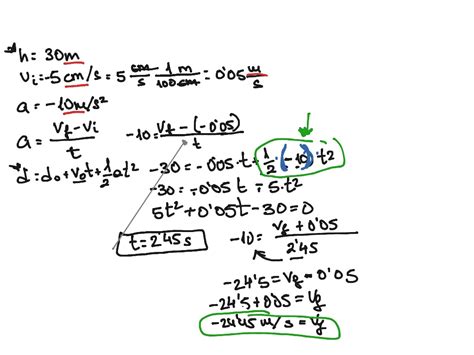 h = 30m
Vi = -5 cm/s = 5 cm/s · 1 m/100cm = 0'05 m/s
a = -10m/s²
a = (Vf - Vi)/t
-10 = (Vf - (-0'05))/t
d = do + Vot + 1/2 at²
-30 = -0'05·t + 1/2·(-10)·t²
-30 = -0'05t - 5·t²
5t² + 0'05t - 30 = 0
t = 2'45 s
-10 = (Vf + 0'05)/2'45
-24'5 = Vf - 0'05
-24'5 + 0'05 = Vf
-24'45 m/s = Vf